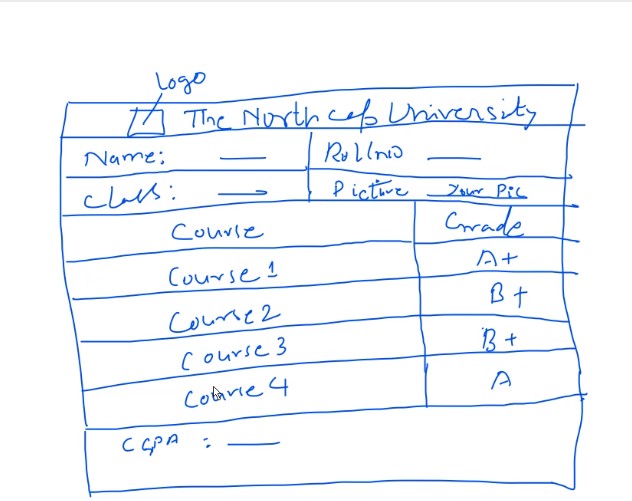 Logo
The North cap University
Name: Rollno
Class: Picture Your Pic
Course Grade
Course 1 A+
Course 2 B+
Course 3 B+
Course 4 A
CGPA :